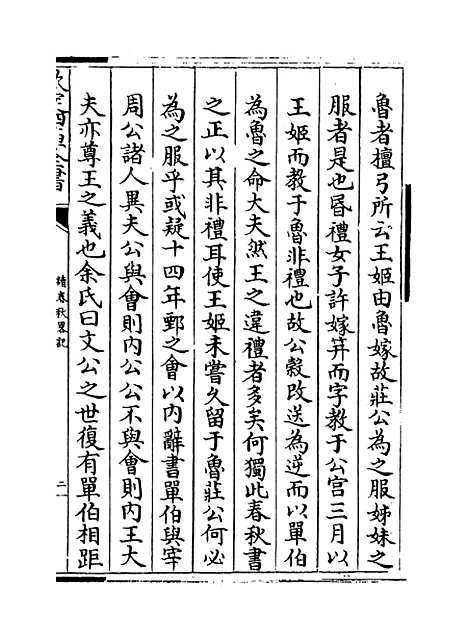 魯者檀弓所云王姬由魯嫁故莊公為之服姊妹之
服者是也昏禮女子許嫁笄而字教于公宫三月以
王姬而教于魯非禮也故公穀改送為逆而以單伯
為魯之命大夫然王之違禮者多矣何獨此春秋書
之正以其非禮耳使王姬未嘗久留于魯莊公何必
為之服乎或疑十四年鄄之會以内辭書單伯與宰
周公諸人異夫公與會則内公公不與會則内王大
夫亦尊王之義也余氏曰文公之世復有單伯相距
欽定四庫全書
讀春秋畧記
二